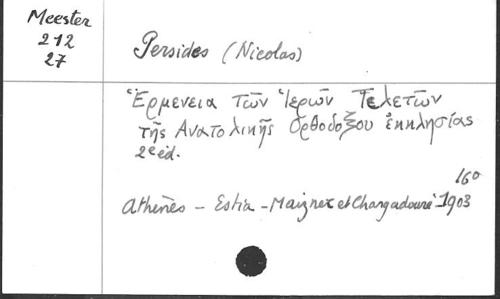 Meester
212
27
Persides (Nicolas)
Ἑρμενεια τῶν Ἱερῶν Τελετῶν
τῆς Ανατολικῆς Ορθοδοξου ἐκκλησίας
2e éd.
16°
Athènes – Estia – Maisner et Chargadouré – 1903